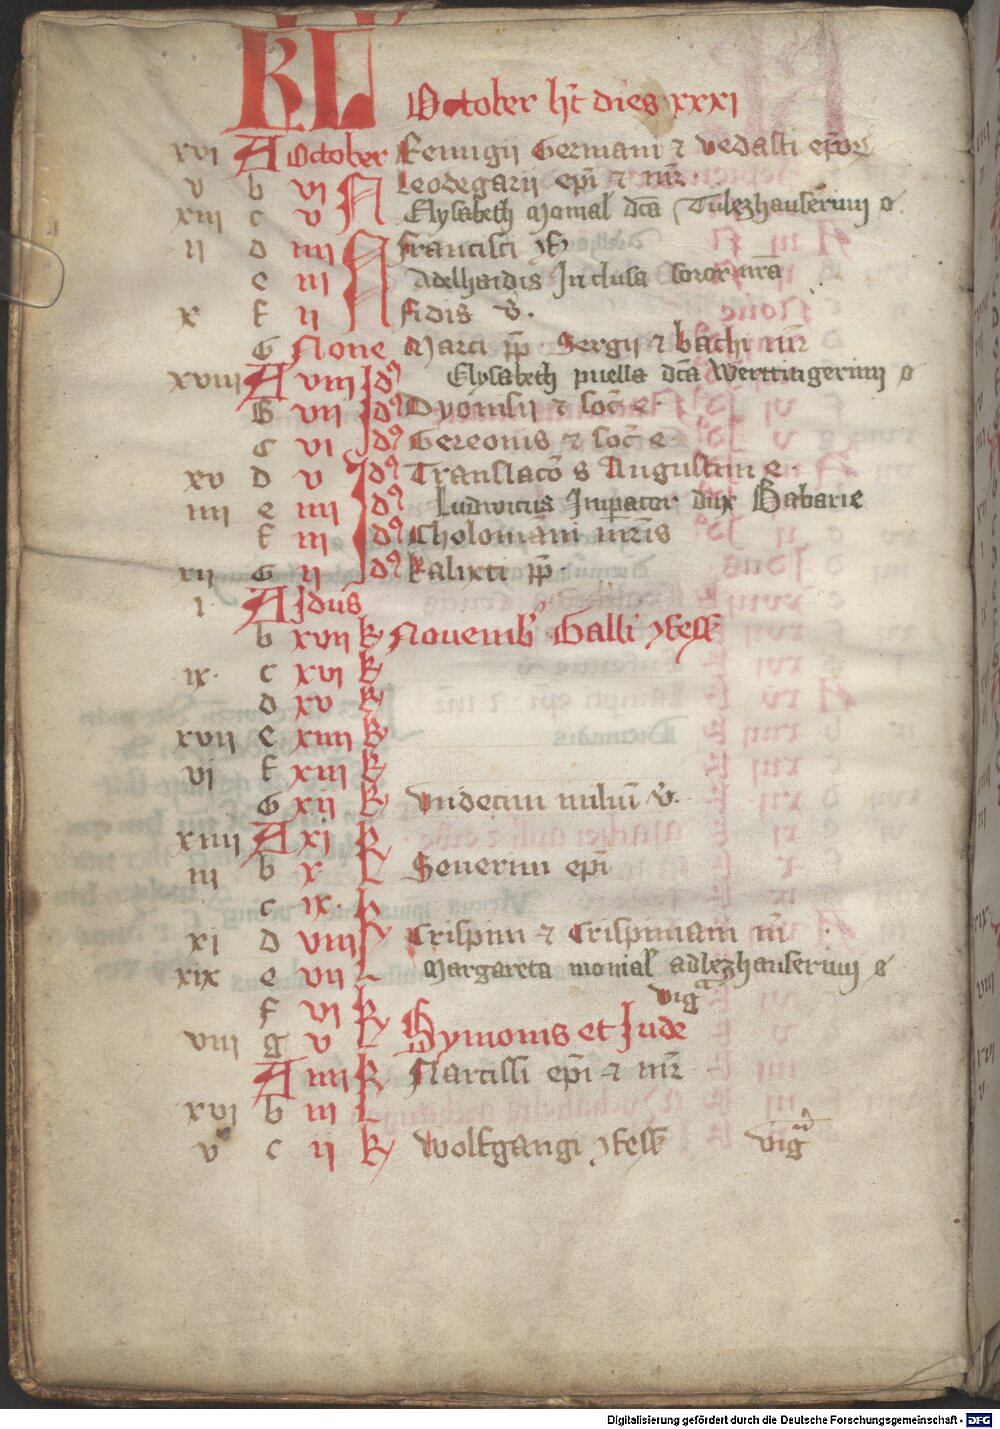 KL
October ht dies xxxi
xvi A October Remigii Germani ⁊ vedasti epor
v b vi N Leodegarii epi ⁊ mr
xiii c v N Elysabeth Monial dca Tulezhauserinn o
ii d iiii N Francisci
e iii N Adelhaidis Inclusa soror nra
x f ii N Fidis v.
G None Marci pp Sergii ⁊ bachi mr
xviii A viii Idꝰ Elysabeth puella dca Werttingerinn o
b vii Idꝰ Dyonisii ⁊ soc e
c vi Idꝰ Gereonis ⁊ soc e
xv d v Idꝰ Translaco s Augustini e
iiii e iiii Idꝰ Ludwicus Impator dux Babarie
f iii Idꝰ Cholomani mris
xii G ii Idꝰ kalixti pp
i A Idus
b xvii k Novemb Galli ꝯfess
ix c xvi k
d xv k
xvii e xiiii k
vi f xiii k
G xii k Undecim miliu v.
xiiii A xi k
iii b x L Severini epi
c ix k
xi d viii k Crispini ⁊ Crispiniani m
xix e vii L Margareta monial adlezhauserinn o
f vi k vig
viii g v Symonis et Jude
A iiii k Narcissi epi ⁊ mr
xvi b iii L
v c ii k Wolfgangi ꝯfess vig
Digitalisierung gefördert durch die Deutsche Forschungsgemeinschaft - DFG